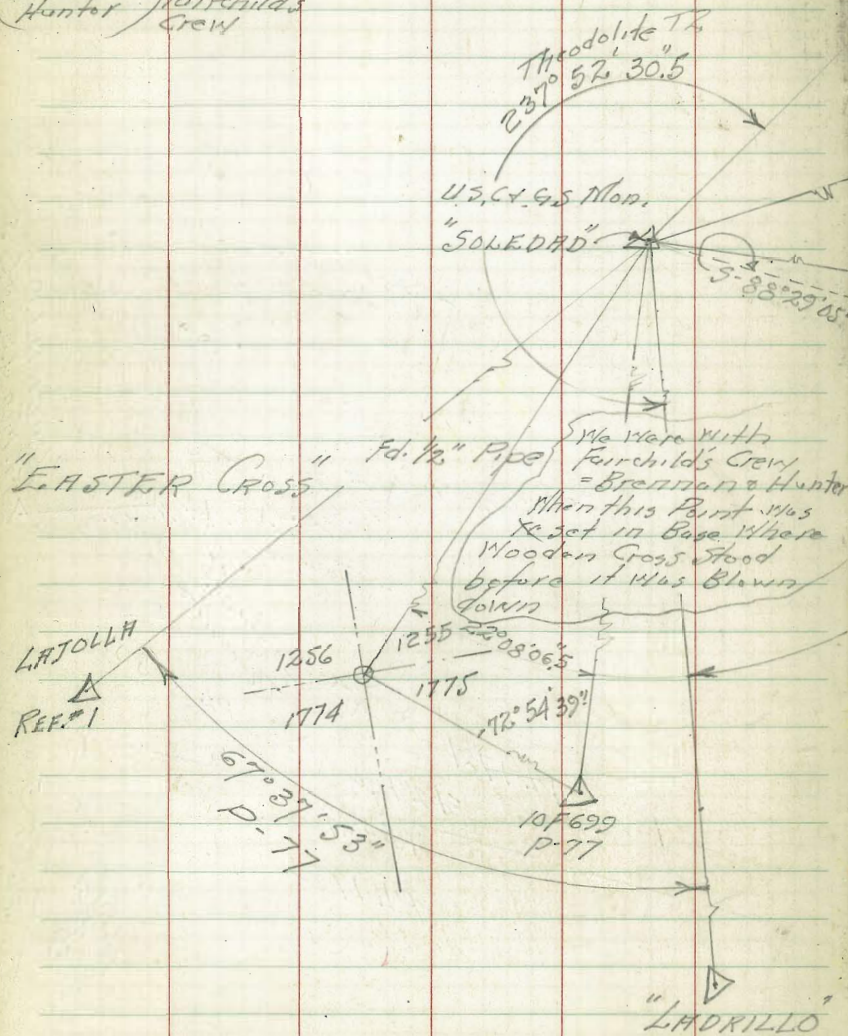 Hunter) Fairchild's
Crew
Theodolite T2
237° 52' 30.5"
U.S.C.&.G.S Mon.
"SOLEDAD"
S-88°29'05"
"EASTER CROSS"
Fd. 1/2" Pipe
We Were with
Fairchild's Crew
=Brennan & Hunter
When this Point was
set in Base Where
Wooden Cross Stood
before it was Blown
down
LAJOLLA
REF.#1
1256
1255
22°08'06.5"
1774
1775
72°54'39"
67°37'53"
P-77
10F699
P-77
"LADRILLO"